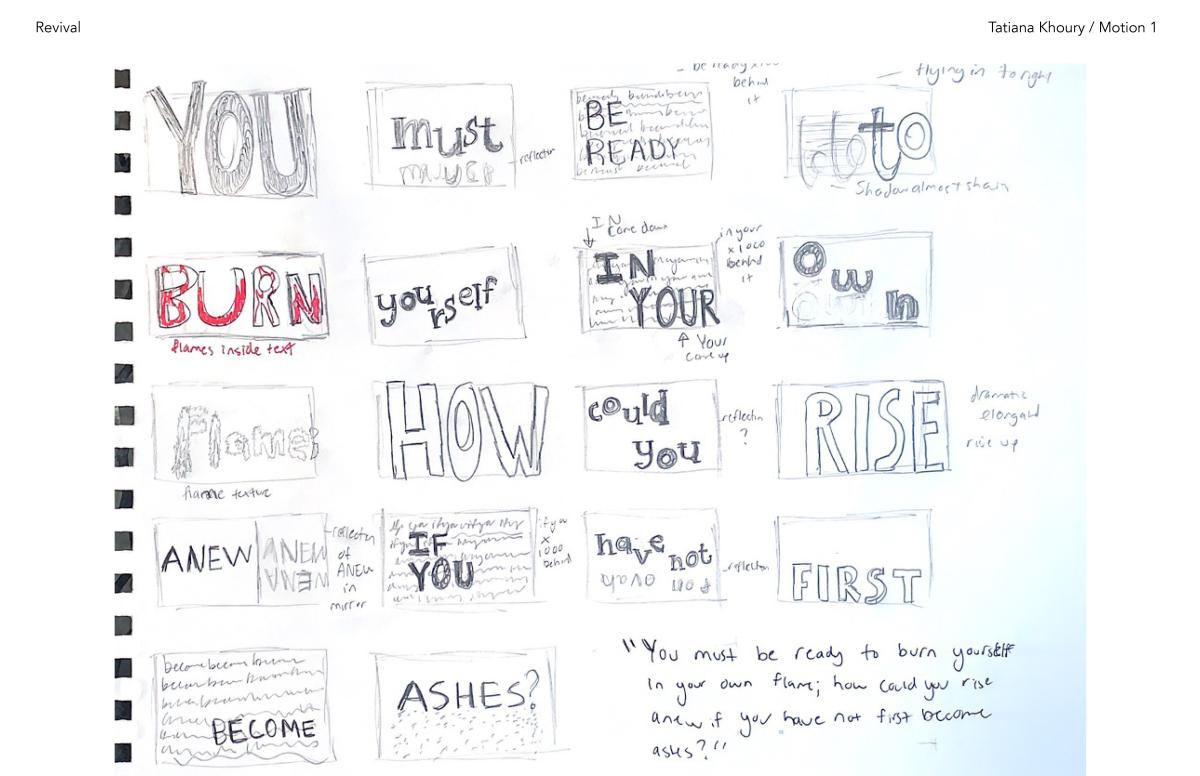 Revival
Tatiana Khoury / Motion 1
YOU
must
reflection
BE
READY
be ready x100
behind
it
to
flying in to right
Shadow almost shain
BURN
flames inside text
yourself
IN
come down
IN
YOUR
in your
x 1000
behind
it
Your
come up
own
Flame;
flame texture
HOW
could
you
reflection
?
RISE
dramatic
elongated
rise up
ANEW
ANEW
ANEW
reflection
of
ANEW
in
mirror
IF
YOU
if you
x
1000
behind
have not
reflection
FIRST
become becom becom
BECOME
ASHES?
"You must be ready to burn yourself
in your own flame; how could you rise
anew if you have not first become
ashes?"